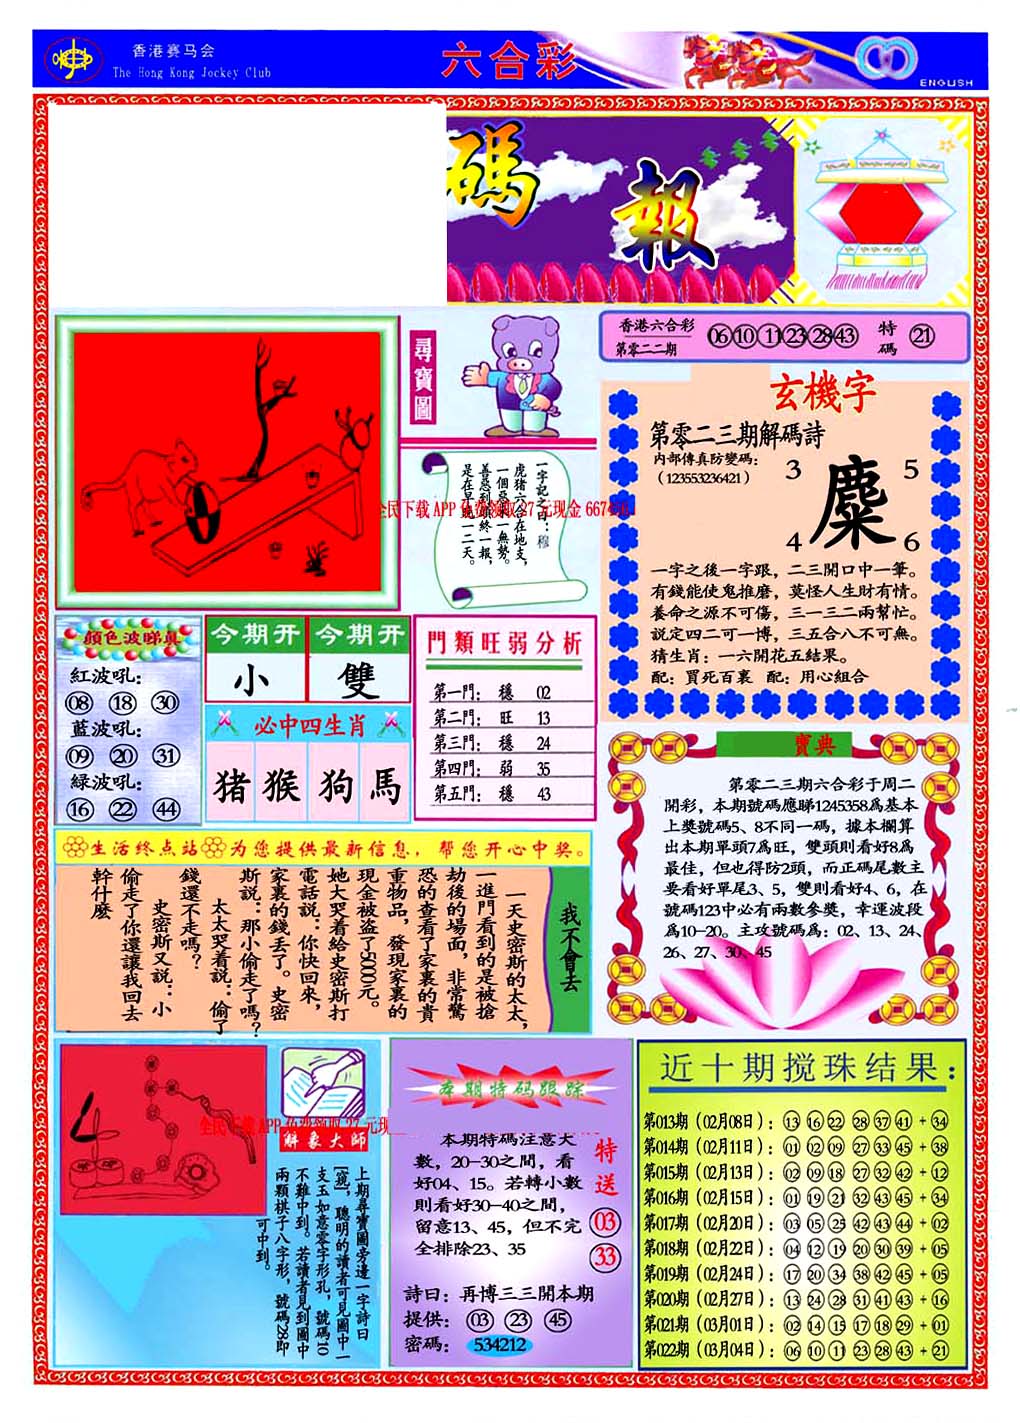 香港赛马会
The Hong Kong Jockey Club
六合彩
ENGLISH
碼報
尋寶圖
香港六合彩
第零二二期
06 10 11 23 28 43
特碼
21
玄機字
第零二三期解碼詩
内部傳真防變碼：
（123553236421）
3 5
麋
4 6
一字之後一字跟，二三開口中一筆。
有錢能使鬼推磨，莫怪人生財有情。
養命之源不可傷，三一三二兩幫忙。
説定四二可一博，三五合八不可無。
猜生肖：一六開花五結果。
配：買死百裏 配：用心組合
一字記之曰：穆
虎猪六合在地支，
一個惡來一無勢。
善惡到頭終一報，
是在早晚一二天。
全民下载 APP 免费领取 27 元现金
顔色波睇真
紅波吼：
08 18 30
藍波吼：
09 20 31
緑波吼：
16 22 44
今期开
小
今期开
雙
必中四生肖
猪 猴 狗 馬
門類旺弱分析
第一門： 穩 02
第二門： 旺 13
第三門： 穩 24
第四門： 弱 35
第五門： 穩 43
寶典
第零二三期六合彩于周二
開彩，本期號碼應睇1245358爲基本
上獎號碼5、8不同一碼，據本欄算
出本期單頭7爲旺，雙頭則看好8爲
最佳，但也得防2頭，而正碼尾數主
要看好單尾3、5，雙則看好4、6，在
號碼123中必有兩數參獎，幸運波段
爲10-20。主攻號碼爲：02、13、24、
26、27、30、45
生活终点站
为您提供最新信息，帮您开心中奖。
我不會去
一天史密斯的太太，
一進門看到的是被搶
劫後的場面，非常驚
恐的查看了家裏的貴
重物品，發現家裏的
現金被盗了5000元。
她大哭着給史密斯打
電話説：你快回來，
家裏的錢丢了。史密
斯説：那小偷走了嗎？
太太哭着説：偷了
錢還不走嗎？
史密斯又説：小
偷走了你還讓我回去
幹什麽
全民下载 APP 免费领取 27 元现
解象大師
上期尋寶圖旁邊一字詩曰
，聰明的讀者可見圖中一
支玉如意零字形孔，號碼10
不難中到。若讀者見到圖中
兩顆棋子八字形，號碼28即
可中到。
本期特码跟踪
本期特碼注意大
數，20-30之間，看
好04、15。若轉小數
則看好30-40之間，
留意13、45，但不完
全排除23、35
特送
03
33
詩曰：再博三三開本期
提供： 03 23 45
密碼： 534212
近十期搅珠结果：
第013期（02月08日）：13 16 22 28 37 41 + 34
第014期（02月11日）：01 02 09 27 33 45 + 38
第015期（02月13日）：02 09 18 27 32 42 + 12
第016期（02月15日）：01 19 21 32 43 45 + 34
第017期（02月20日）：03 05 25 42 43 44 + 02
第018期（02月22日）：04 12 19 20 30 39 + 05
第019期（02月24日）：17 20 34 38 42 45 + 05
第020期（02月27日）：13 24 28 31 41 43 + 16
第021期（03月01日）：02 14 15 17 18 29 + 01
第022期（03月04日）：06 10 11 23 28 43 + 21